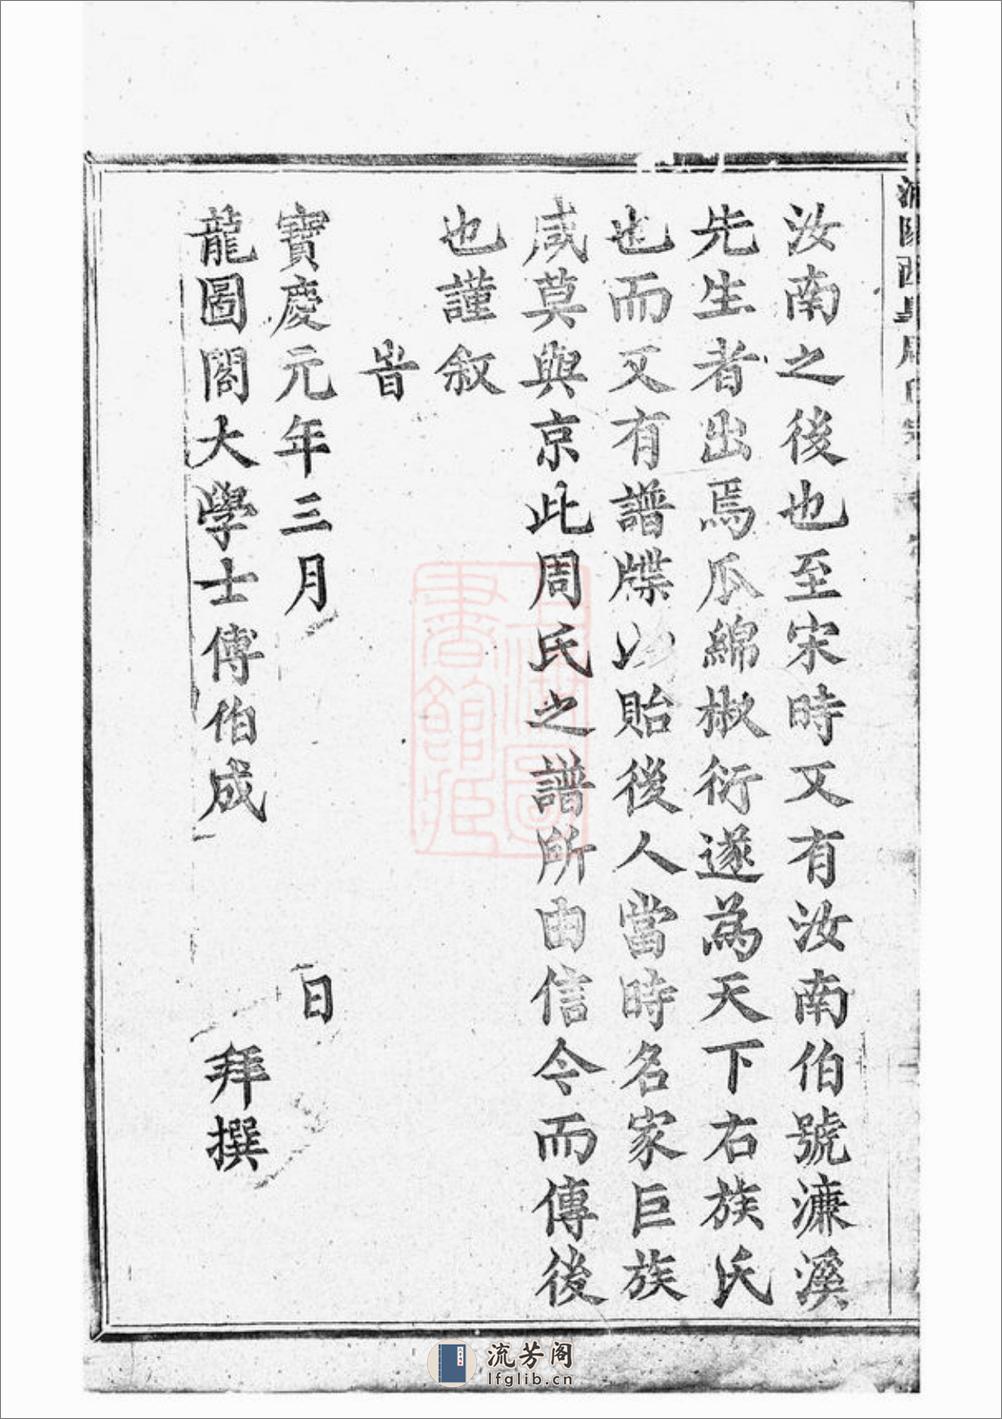 汝南之後也至宋時又有汝南伯號濂溪
先生者出焉瓜綿椒衍遂為天下右族氏
也而又有譜牒以貽後人當時名家巨族
咸莫與京此周氏之譜所由信今而傳後
也謹敘
旹
寶慶元年三月 日
龍圖閣大學士傅伯成 拜撰
流芳阁
lfglib.cn